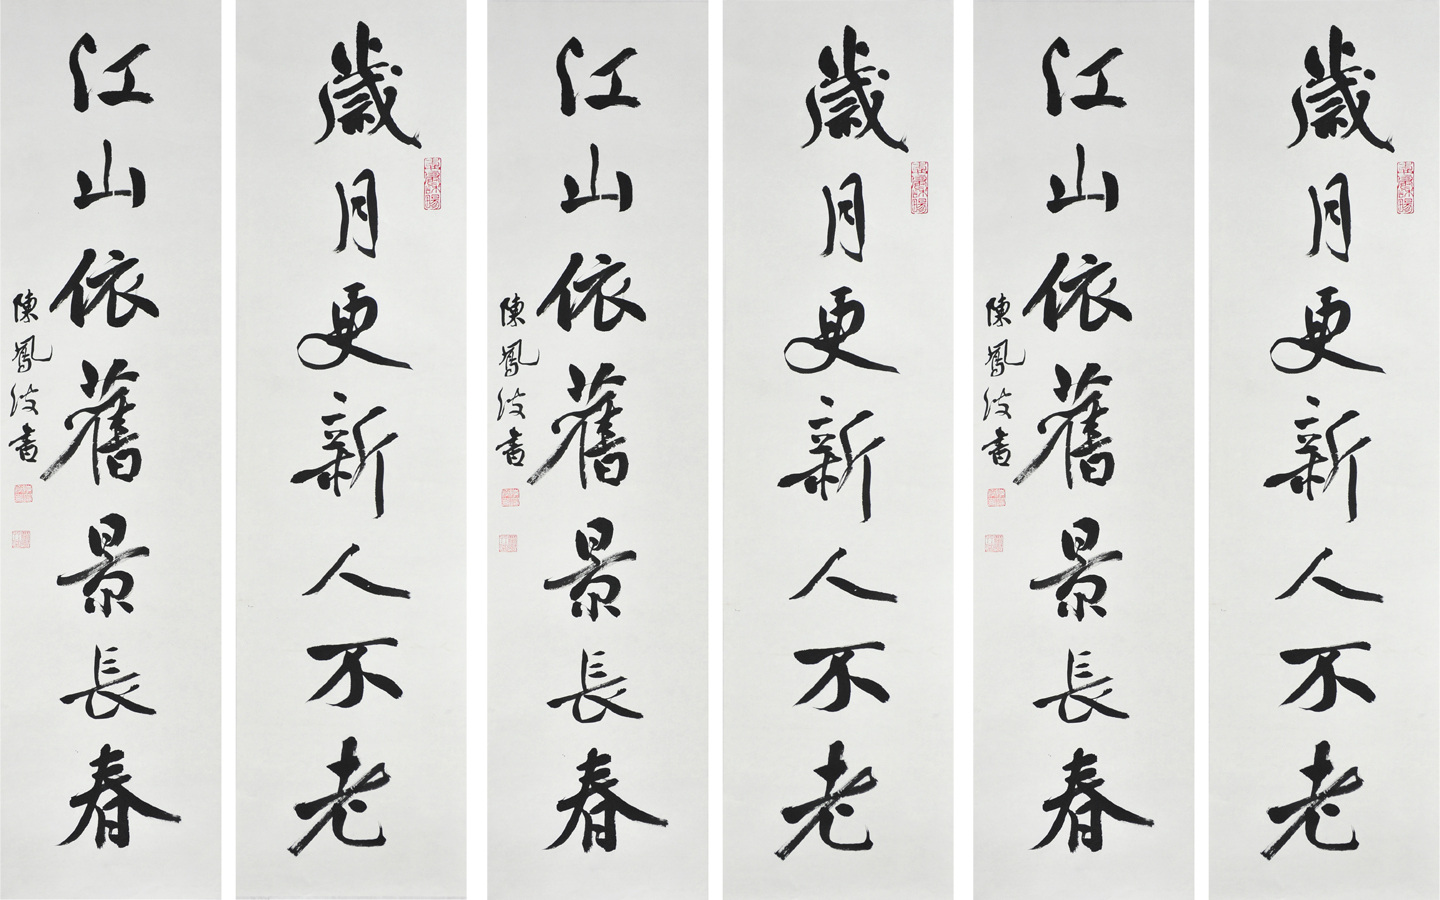 歲月更新人不老
江山依舊景長春
陳鳳書
歲月更新人不老
江山依舊景長春
陳鳳書
歲月更新人不老
江山依舊景長春
陳鳳書